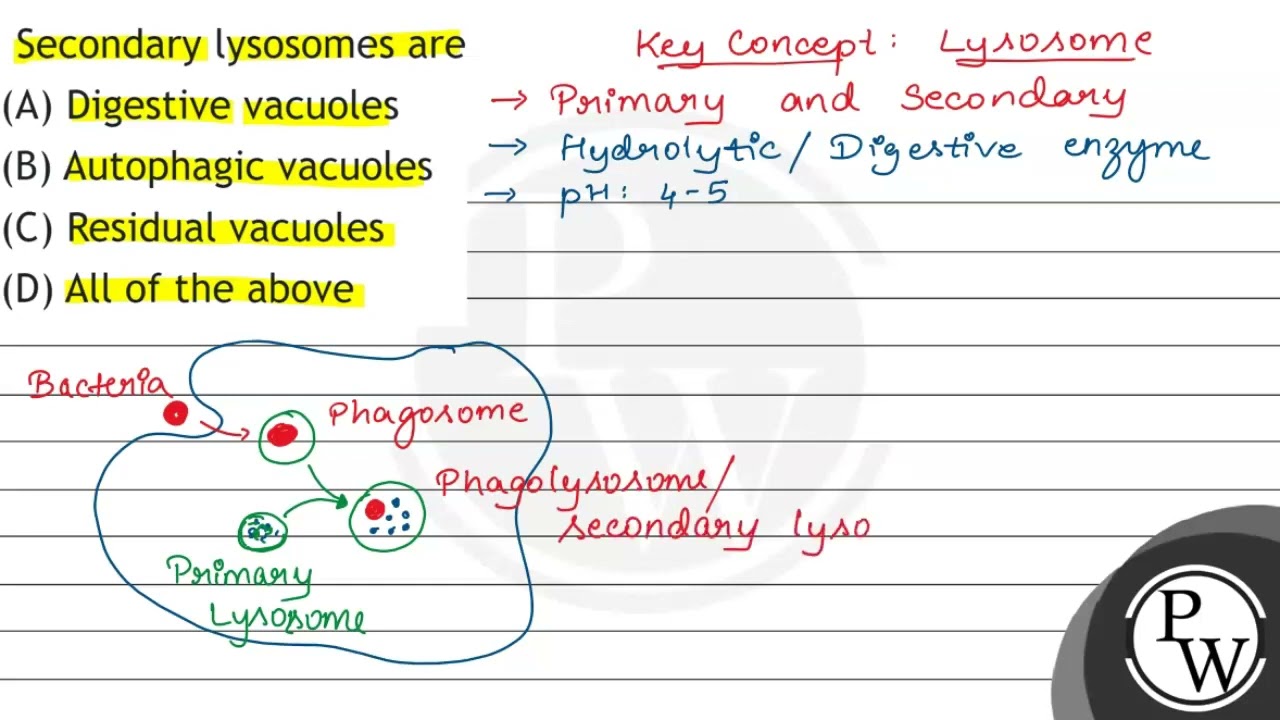 Secondary lysosomes are
(A) Digestive vacuoles
(B) Autophagic vacuoles
(C) Residual vacuoles
(D) All of the above
Key Concept: Lysosome
→ Primary and Secondary
→ Hydrolytic/Digestive enzyme
→ pH: 4-5
Bacteria
Phagosome
Phagolysosome/
secondary lyso
Primary
Lysosome
P
W
P
W